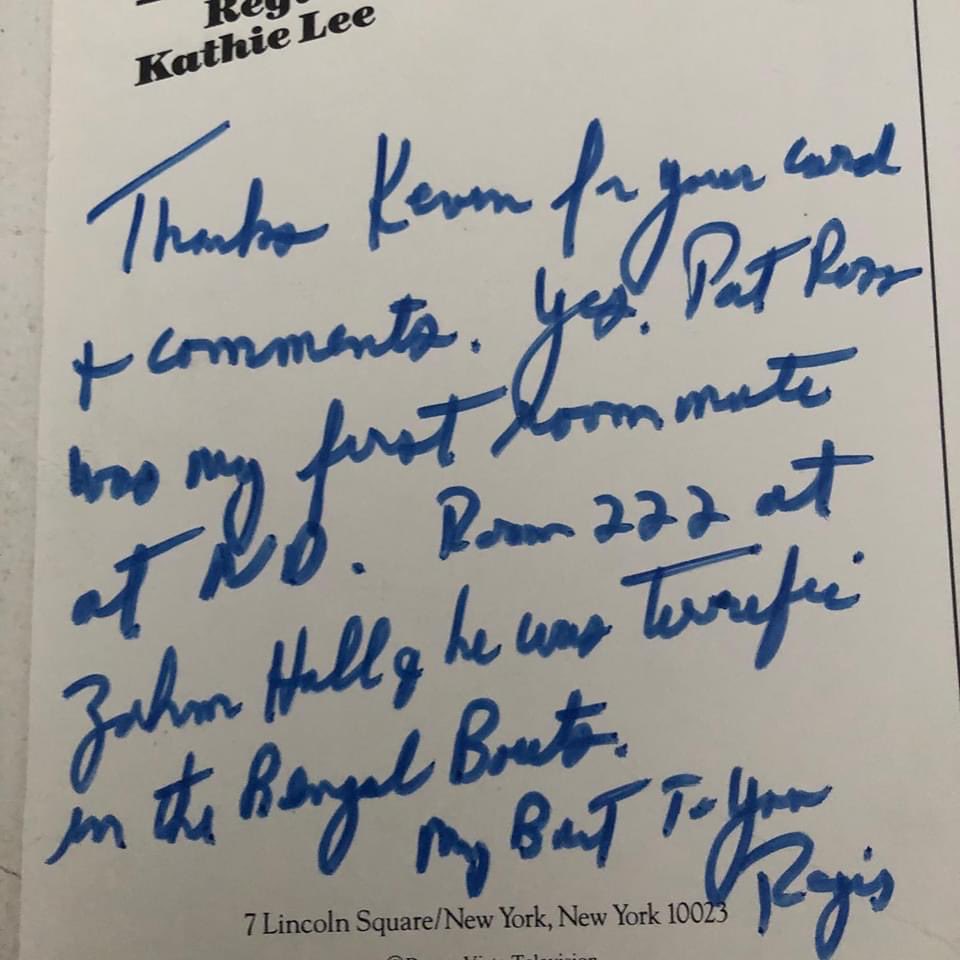 Kathie Lee
Thanks Kevin for your card
+ comments. Yes. Pat Ross
was my first roommate
at ND. Room 222 at
Zahm Hall & he was terrific
in the Bengal Bouts.
My Best To You
Regis
7 Lincoln Square/New York, New York 10023